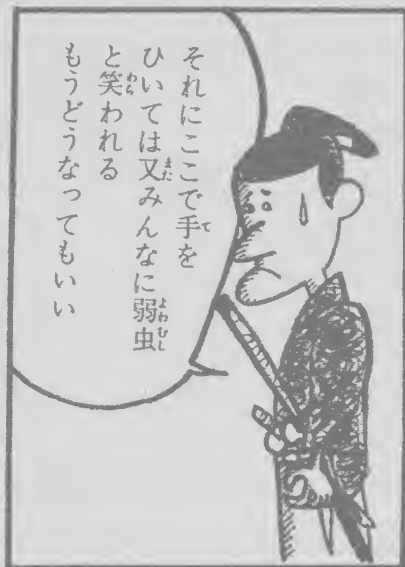 それにここで手を
ひいては又みんなに弱虫
と笑われる
もうどうなってもいい